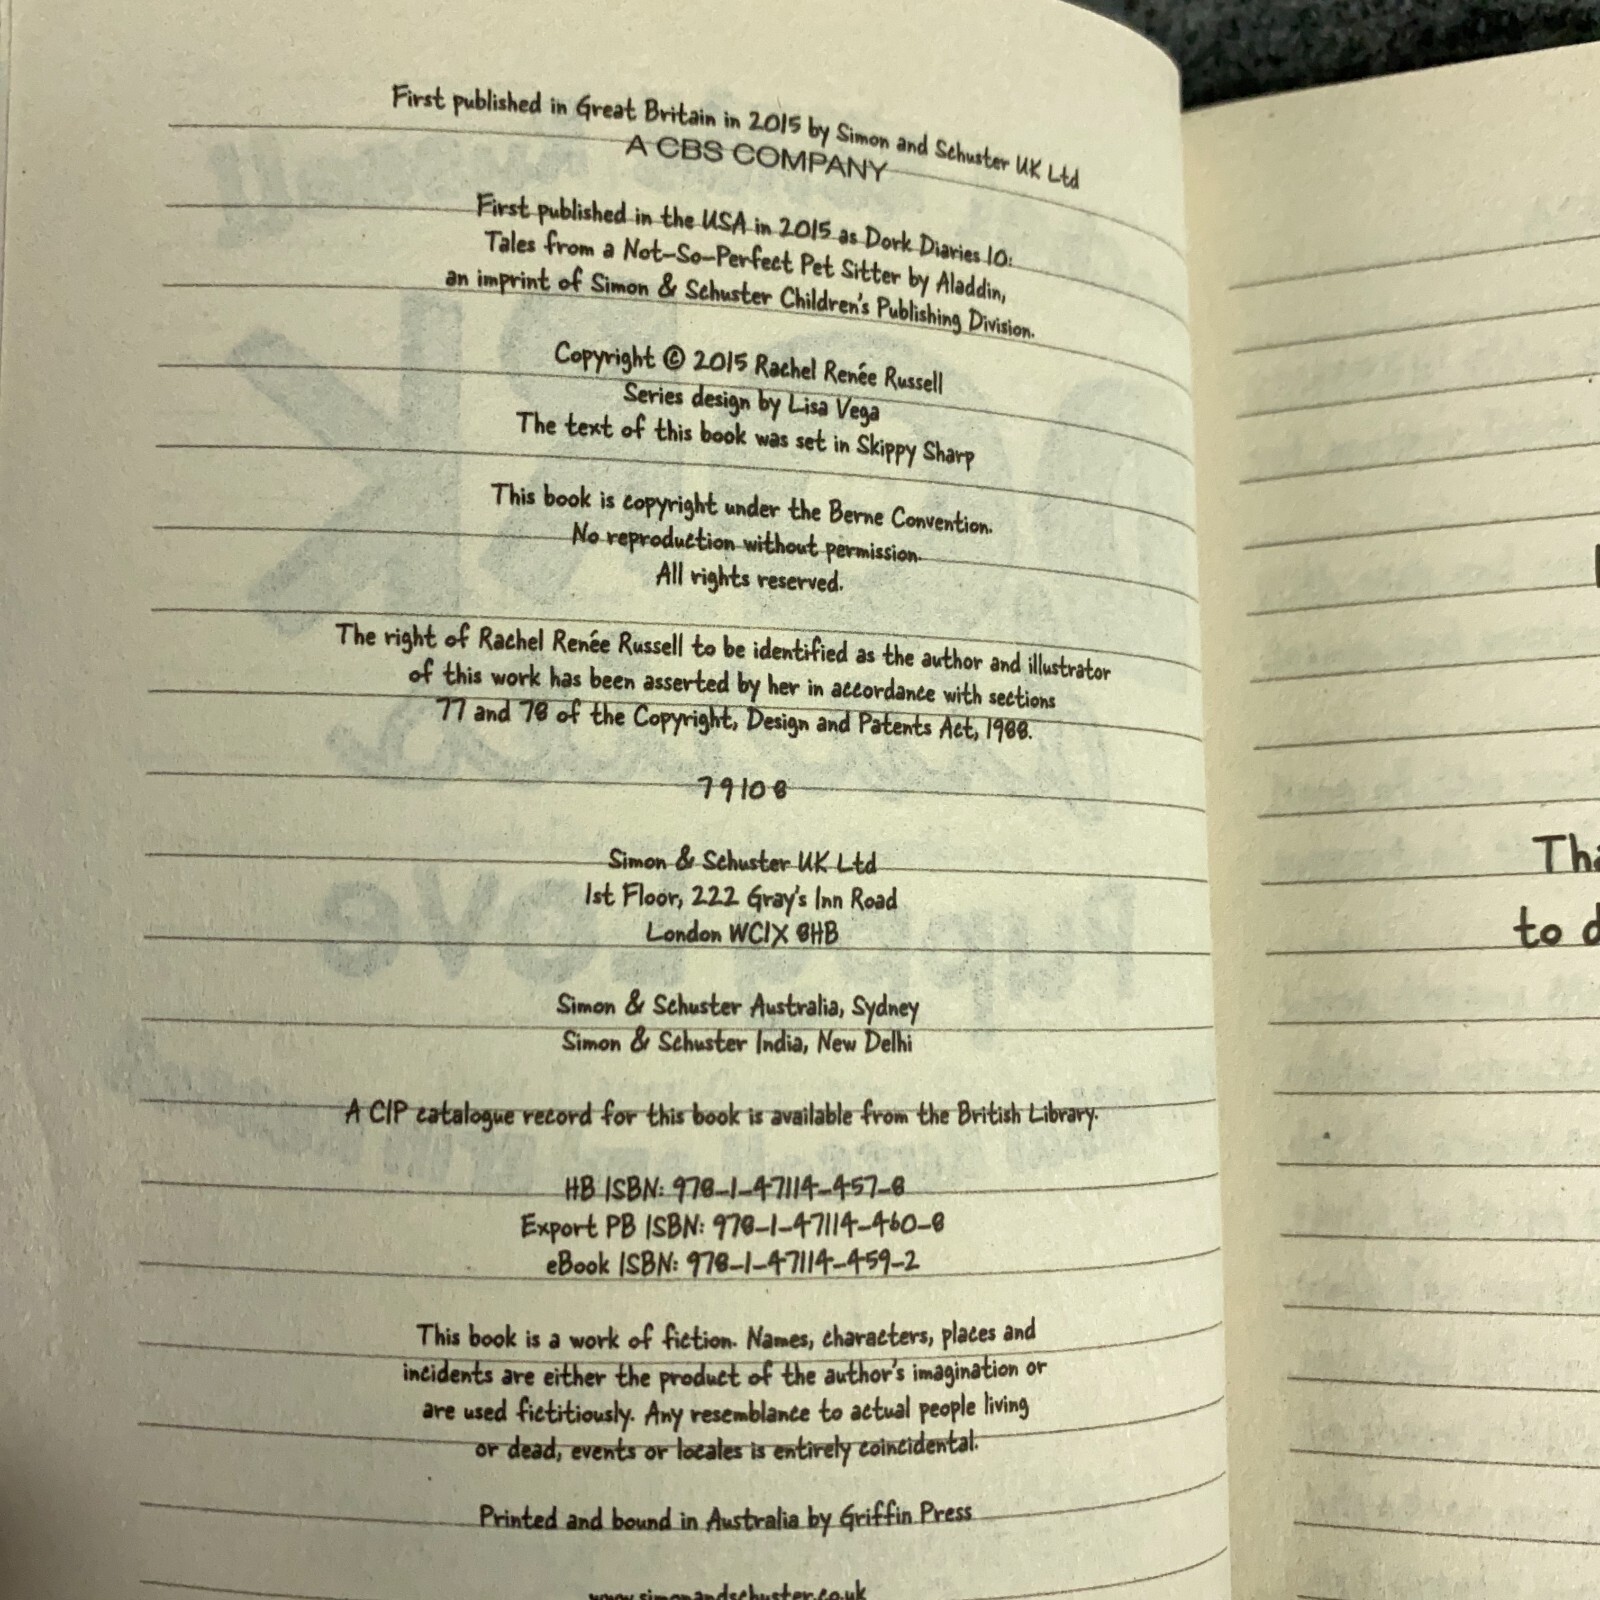 First published in Great Britain in 2015 by Simon and Schuster UK Ltd
A CBS COMPANY
First published in the USA in 2015 as Dork Diaries 10:
Tales from a Not-So-Perfect Pet Sitter by Aladdin,
an imprint of Simon & Schuster Children's Publishing Division.
Copyright © 2015 Rachel Renée Russell
Series design by Lisa Vega
The text of this book was set in Skippy Sharp
This book is copyright under the Berne Convention.
No reproduction without permission.
All rights reserved.
The right of Rachel Renée Russell to be identified as the author and illustrator
of this work has been asserted by her in accordance with sections
77 and 78 of the Copyright, Design and Patents Act, 1988.
7 9 10 8
Simon & Schuster UK Ltd
1st Floor, 222 Gray's Inn Road
London WC1X 8HB
Simon & Schuster Australia, Sydney
Simon & Schuster India, New Delhi
A CIP catalogue record for this book is available from the British Library.
HB ISBN: 978-1-47114-457-8
Export PB ISBN: 978-1-47114-460-8
eBook ISBN: 978-1-47114-459-2
This book is a work of fiction. Names, characters, places and
incidents are either the product of the author's imagination or
are used fictitiously. Any resemblance to actual people living
or dead, events or locales is entirely coincidental.
Printed and bound in Australia by Griffin Press
www.simonandschuster.co.uk
Tha
to d